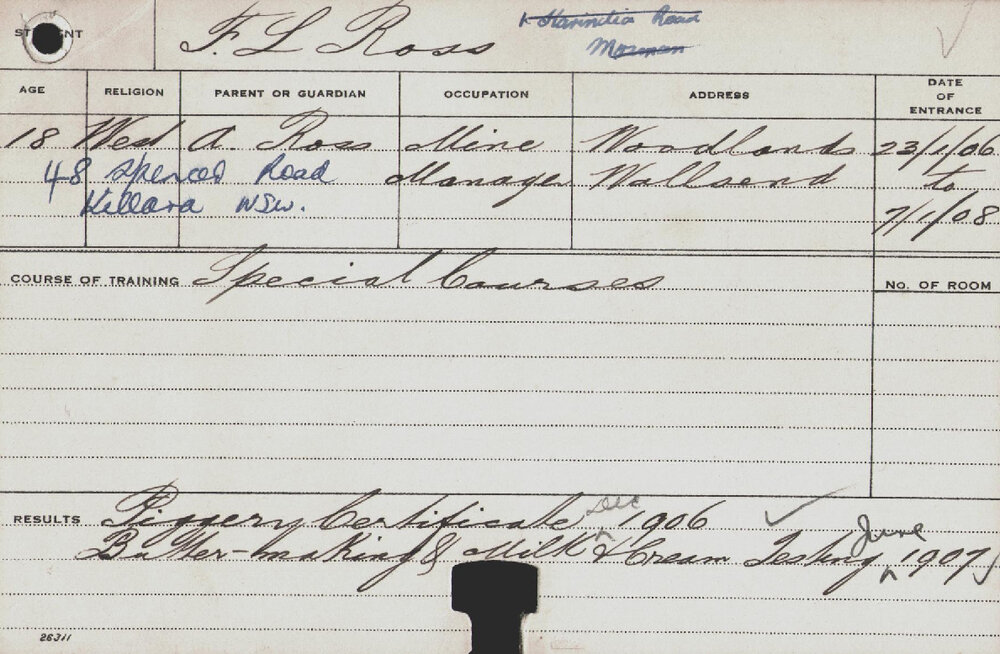 STUDENT F. L Ross
Road
Mosman
AGE RELIGION PARENT OR GUARDIAN OCCUPATION ADDRESS DATE OF ENTRANCE
18 Wesl A. Ross Mine Woodlands 23/1/06
48 Spencer Road Manager Wallsend to
Killara NSW. 7/1/08
COURSE OF TRAINING Special Courses No. OF ROOM
RESULTS Piggery Certificate Dec 1906
Butter-making & Milk & Cream Testing June 1907
26311